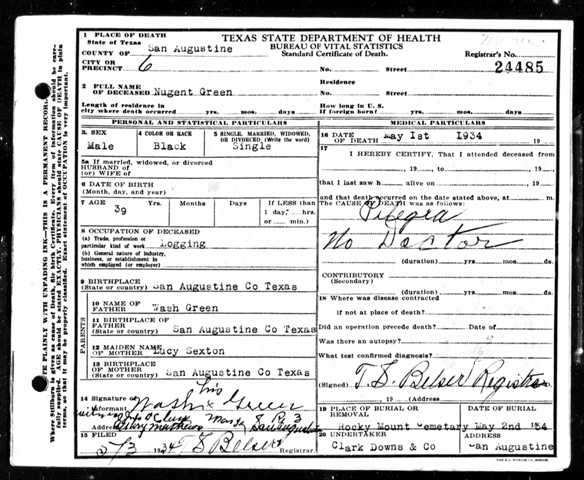 1 PLACE OF DEATH
State of Texas
COUNTY OF San Augustine
CITY OR PRECINCT 6
TEXAS STATE DEPARTMENT OF HEALTH
BUREAU OF VITAL STATISTICS
Standard Certificate of Death.
Registrar's No.
No. Street
24485
2 FULL NAME OF DECEASED Nugent Green
Residence
No. Street
Length of residence in city where death occurred yrs. mos. days
How long in U. S. if foreign born? yrs. mos. days
PERSONAL AND STATISTICAL PARTICULARS
MEDICAL PARTICULARS
3. SEX
Male
4 COLOR OR RACE
Black
5 SINGLE, MARRIED, WIDOWED, OR DIVORCED (Write the word)
Single
5a If married, widowed, or divorced
HUSBAND OF
(or) WIFE OF
6 DATE OF BIRTH
(Month, day, and year)
7 AGE 39 Yrs. Months Days If LESS than 1 day, hrs. or min.
8 OCCUPATION OF DECEASED
(a) Trade, profession or particular kind of work Logging
(b) General nature of industry, business, or establishment in which employed (or employer)
9 BIRTHPLACE
(State or country) San Augustine Co Texas
PARENTS
10 NAME OF FATHER Wash Green
11 BIRTHPLACE OF FATHER
(State or country) San Augustine Co Texas
12 MAIDEN NAME OF MOTHER Lucy Sexton
13 BIRTHPLACE OF MOTHER
(State or country) San Augustine Co Texas
14 Signature of Informant
his
Wash x Green
Address
San Augustine
15 FILED 5/3 1934 T S Belser Registrar.
16 DATE OF DEATH May 1st 1934 19
17 I HEREBY CERTIFY, That I attended deceased from
, 19 , to , 19
that I last saw h alive on , 19
and that death occurred on the date stated above, at m.
The CAUSE OF DEATH was as follows:
No Doctor
(duration) yrs. mos. ds.
CONTRIBUTORY
(Secondary)
(duration) yrs. mos. ds.
18 Where was disease contracted
if not at place of death?
Did an operation precede death? Date of
Was there an autopsy?
What test confirmed diagnosis?
(Signed) T. S. Belser Registrar
, 19 (Address)
19 PLACE OF BURIAL OR REMOVAL
Rocky Mount Cemetary
DATE OF BURIAL
May 2nd 134
20 UNDERTAKER
Clark Downs & Co
ADDRESS
San Augustine